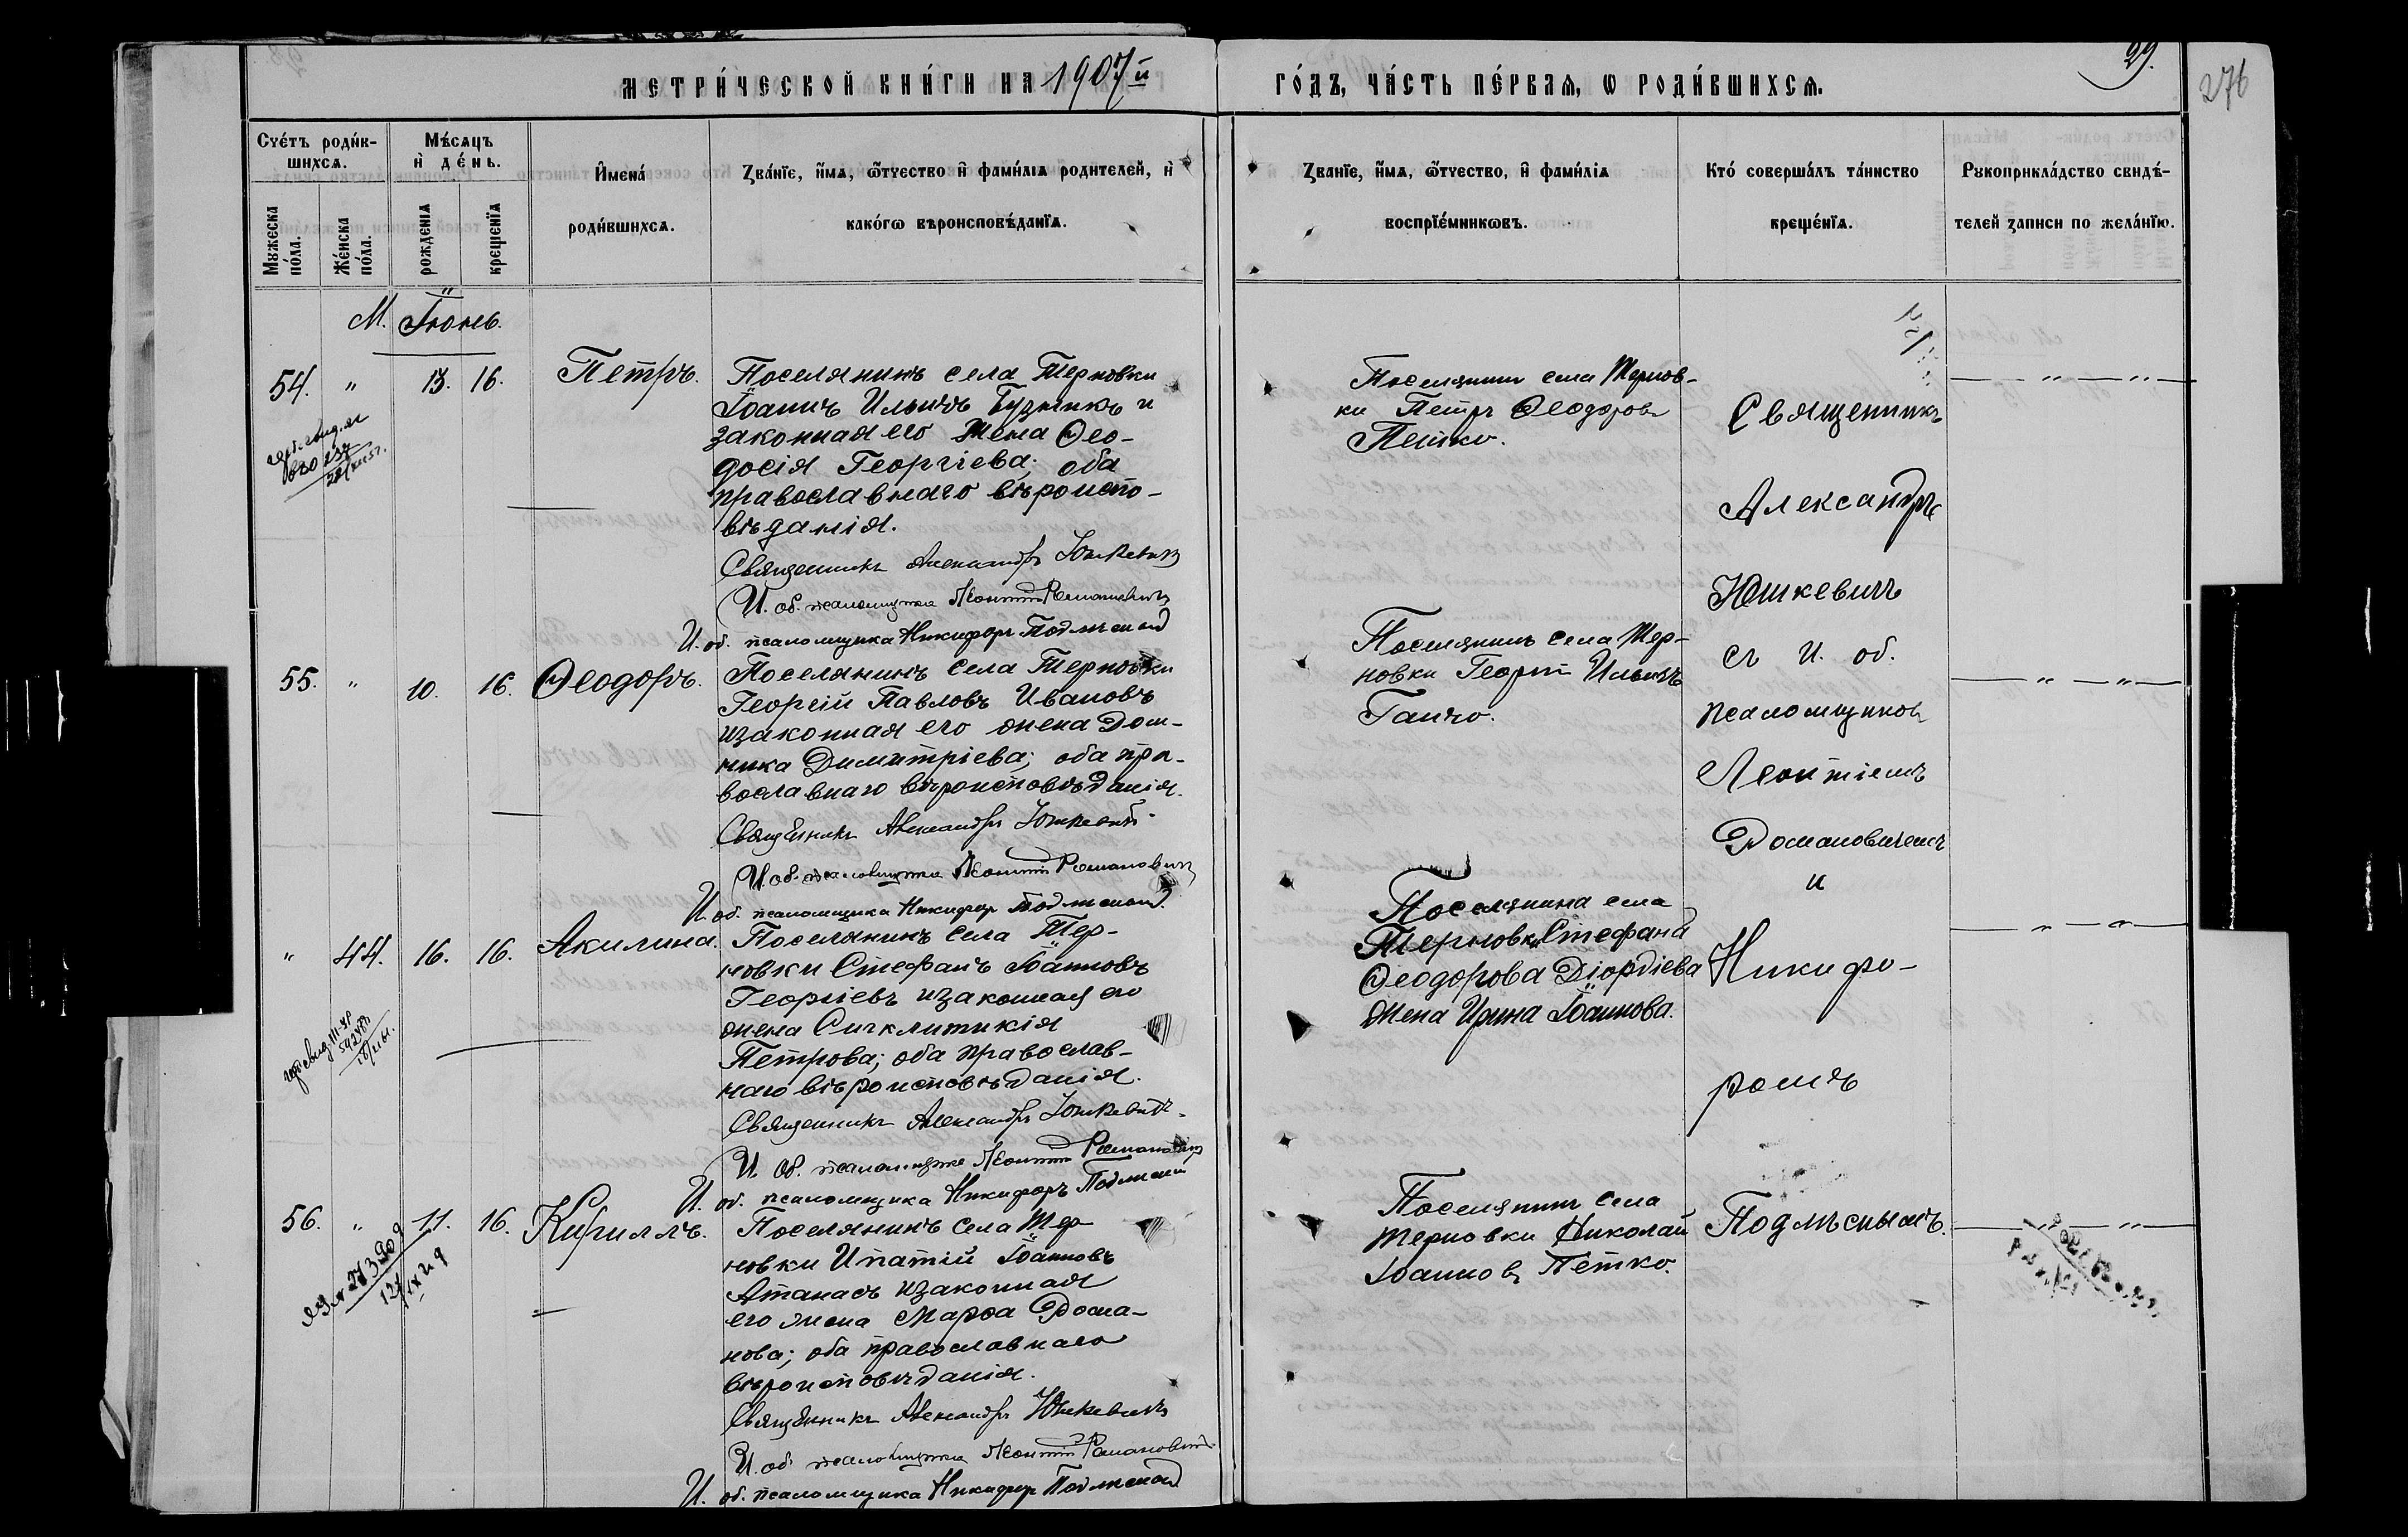 МЕТРИ́ЧЕСКОЙ КНИ́ГИ НА 1907й
ГО́ДЪ, ЧА́СТЬ ПЕ́РВАѦ, Ѡ РОДИ́ВШИХСѦ.
29.
276
Сче́тъ роди́в-
шихсѧ.
Мужеска
по́ла.
Же́нска
по́ла.
Мѣ́сѧцъ
и де́нь.
рожденїѧ
крещенїѧ
Имена́
роди́вшихсѧ.
Зва́нїе, и́мѧ, ѻ҆́тчество и фами́лїѧ родителей, и
како́гѡ вѣроисповѣ́данїѧ.
Званїе, и́мѧ, ѻ҆́тчество, и фами́лїѧ
воспрїе́мникѡвъ.
Кто́ соверша́лъ та́инство
креще́нїѧ.
Рукоприкла́дство свидѣ́-
телей записи по жела́нїю.
М. Іюнь.
54. " 13. 16. Петръ.
Поселянинъ села Терновки
Іоаннъ Ильичъ Гузникъ и
законная его жена Ѳео-
досія Георгіева; оба
православнаго вѣроиспо-
вѣданія.
Священникъ Александръ Юшкевичъ
И. об. псаломщика Леонтій Романовичъ
И. об. псаломщика Никифоръ Подлѣсный
Поселянинъ села Тернов-
ки Петръ Ѳеодоровъ
Петко.
55. " 10. 16. Ѳеодоръ.
Поселянинъ села Терновки
Георгій Павловъ Ивановъ
и законная его жена Дом-
ника Димитріева; оба пра-
вославнаго вѣроисповѣданія.
Священникъ Александръ Юшкевичъ
И. об. псаломщика Леонтій Романовичъ
И. об. псаломщика Никифоръ Подлѣсный
Поселянинъ села Тер-
новки Георгій Ильичъ
Ганчо.
" 44. 16. 16. Акилина.
Поселянинъ села Тер-
новки Стефанъ Іоанновъ
Георгіевъ и законная его
жена Синклитикія
Петрова; оба православ-
наго вѣроисповѣданія.
Священникъ Александръ Юшкевичъ
И. об. псаломщика Леонтій Романовичъ
И. об. псаломщика Никифоръ Подлѣсный
Поселянина села
Терновки Стефана
Ѳеодорова Діордіева
жена Ирина Іоаннова.
56. " 11. 16. Кириллъ.
Поселянинъ села Тер-
новки Ипатій Іоанновъ
Атанасъ и законная
его жена Марѳа Рома-
нова; оба православнаго
вѣроисповѣданія.
Священникъ Александръ Юшкевичъ
И. об. псаломщика Леонтій Романовичъ
И. об. псаломщика Никифоръ Подлѣсный
Поселянинъ села
Терновки Николай
Іоанновъ Петко.
Священникъ
Александръ
Юшкевичъ
съ И. об.
псаломщиковъ
Леонтіемъ
Романовичемъ
и
Никифо-
ромъ
Подлѣснымъ.